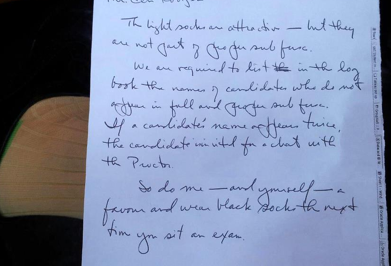 The light socks are attractive — but they
are not part of proper sub fusc.
We are required to list in the log
book the names of candidates who do not
appear in full and proper sub fusc.
If a candidate's name appears twice,
the candidate invited for a chat with
the Proctor.
So do me — and yourself — a
favour and wear black socks the next
time you sit an exam.